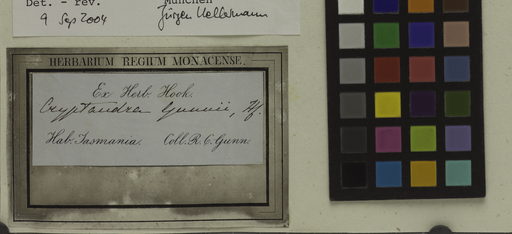 Det. - rev. München
9 Sep 2004 Jürgen Kellermann
HERBARIUM REGIUM MONACENSE.
Ex Herb. Hook.
Cryptandra Gunnii, Hf.
Hab. Tasmania. Coll. R. C. Gunn.